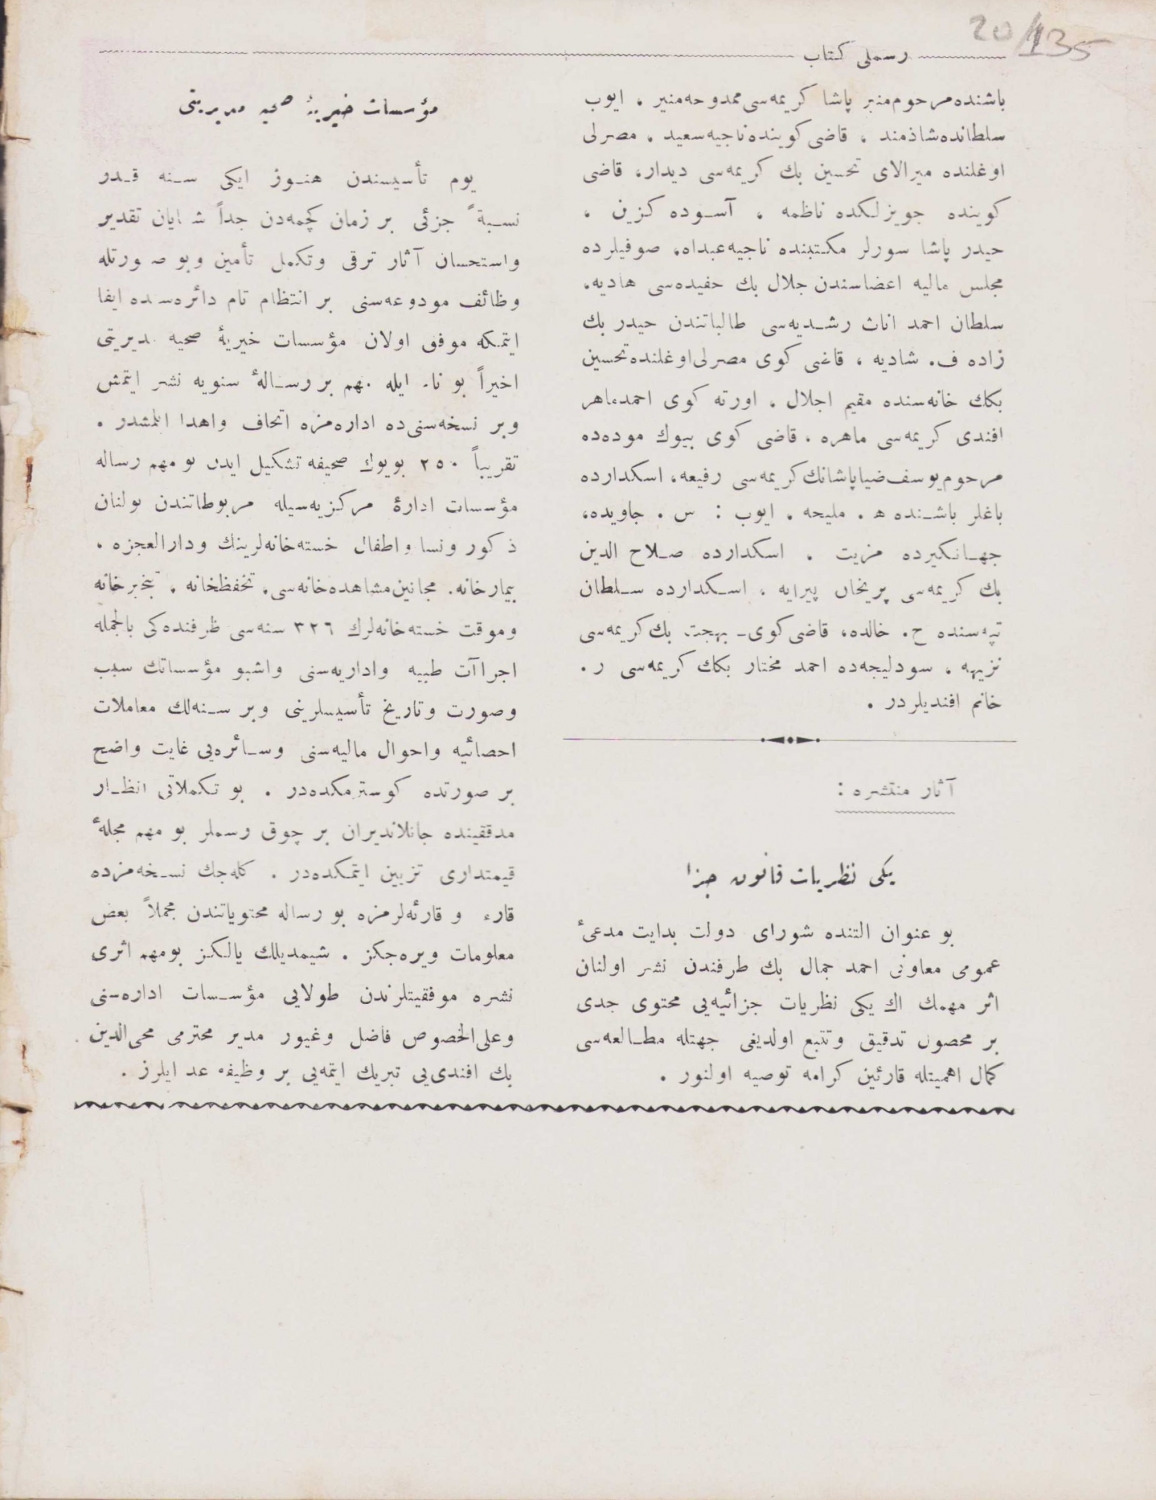 20/135
رسملی كتاب
باشنده مرحوم منیر پاشا كریمه‌سی ممدوحه منیر ، ایوب
سلطانده شاذمند ، قاضی كوینده ناجیه سعید ، مصرلی
اوغلنده میرالای تحسین بك كریمه‌سی دیدار، قاضی
كوینده جویزلكده ناظمه ، آسوده كزین ،
حیدر پاشا سورلر مكتبنده ناجیه عبداه، صوفیلرده
مجلس مالیه اعضاسندن جلال بك حفیده‌سی هادیه،
سلطان احمد اناث رشدیه‌سی طالباتندن حیدر بك
زاده ف. شادیه ، قاضی كوی مصرلی اوغلنده تحسین
بكك خانه‌سنده مقیم اجلال ، اورته كوی احمد ماهر
افندی كریمه‌سی ماهره ، قاضی كوی بیوك موده‌ده
مرحوم یوسف ضیا پاشانك كریمه‌سی رفیعه، اسكدارده
باغلر باشنده ه . ملیحه ، ایوب : س . جاویده،
جهانكیرده مزیت . اسكدارده صلاح الدین
بك كریمه‌سی پریخان پیرایه ، اسكدارده سلطان
تپه‌سنده ح. خالده، قاضی كوی ـ بهجت بك كریمه‌سی
نزیهه ، سودلیجه‌ده احمد مختار بكك كریمه‌سی ر .
خانم افندیلردر .
آثار منتشره :
یكی نظریات قانون جزا
بو عنوان التنده شورای دولت بدایت مدعیٔ
عمومی معاونی احمد جمال بك طرفندن نشر اولنان
اثر مهمك اك یكی نظریات جزائیه‌یی محتوی جدی
بر محصول تدقیق و تتبع اولدیغی جهتله مطالعه‌سی
كمال اهمیتله قارئین كرامه توصیه اولنور .
مؤسسات خیریهٔ صحیه مدیریتی
یوم تأسیسندن هنوز ایكی سنه قدر
نسبةً جزئی بر زمان كچمه‌دن جداً شایان تقدیر
واستحسان آثار ترقی وتكمل تأمین وبو صورتله
وظائف مودوعه‌سنی بر انتظام تام دائره‌سنده ایفا
ایتمكه موفق اولان مؤسسات خیریهٔ صحیه مدیریتی
اخیراً بو نام ایله مهم بر رسالهٔ سنویه نشر ایتمش
وبر نسخه‌سنی‌ده اداره‌مزه اتحاف واهدا ایلمشدر .
تقریباً ٢٥٠ بویوك صحیفه تشكیل ایدن بو مهم رساله
مؤسسات ادارهٔ مركزیه‌سیله مربوطاتندن بولنان
ذكور ونسا واطفال خسته‌خانه‌لرینك ودارالعجزه ،
بیمارخانه، مجانین مشاهده‌خانه‌سی، تحفظخانه ، تبخیرخانه
وموقت خسته‌خانه‌لرك ٣٢٦ سنه‌سی ظرفنده‌كی بالجمله
اجراآت طبیه واداریه‌سنی واشبو مؤسساتك سبب
وصورت وتاریخ تأسیسلرینی وبر سنه‌لك معاملات
احصائیه واحوال مالیه‌سنی وسائره‌یی غایت واضح
بر صورتده كوسترمكده‌در . بو تكملاتی انظار
مدققینده جانلاندیران بر چوق رسملر بو مهم مجلهٔ
قیمتداری تزیین ایتمكده‌در . كله‌جك نسخه‌مزده
قارء و قارئه‌لرمزه بو رساله محتویاتندن مجملاً بعض
معلومات ویره‌جكز . شیمدیلك یالكز بو مهم اثری
نشره موفقیتلرندن طولایی مؤسسات اداره‌سنی
وعلی الخصوص فاضل وغیور مدیر محترمی محی الدین
بك افندی‌یی تبریك ایتمه‌یی بر وظیفه عد ایلرز .